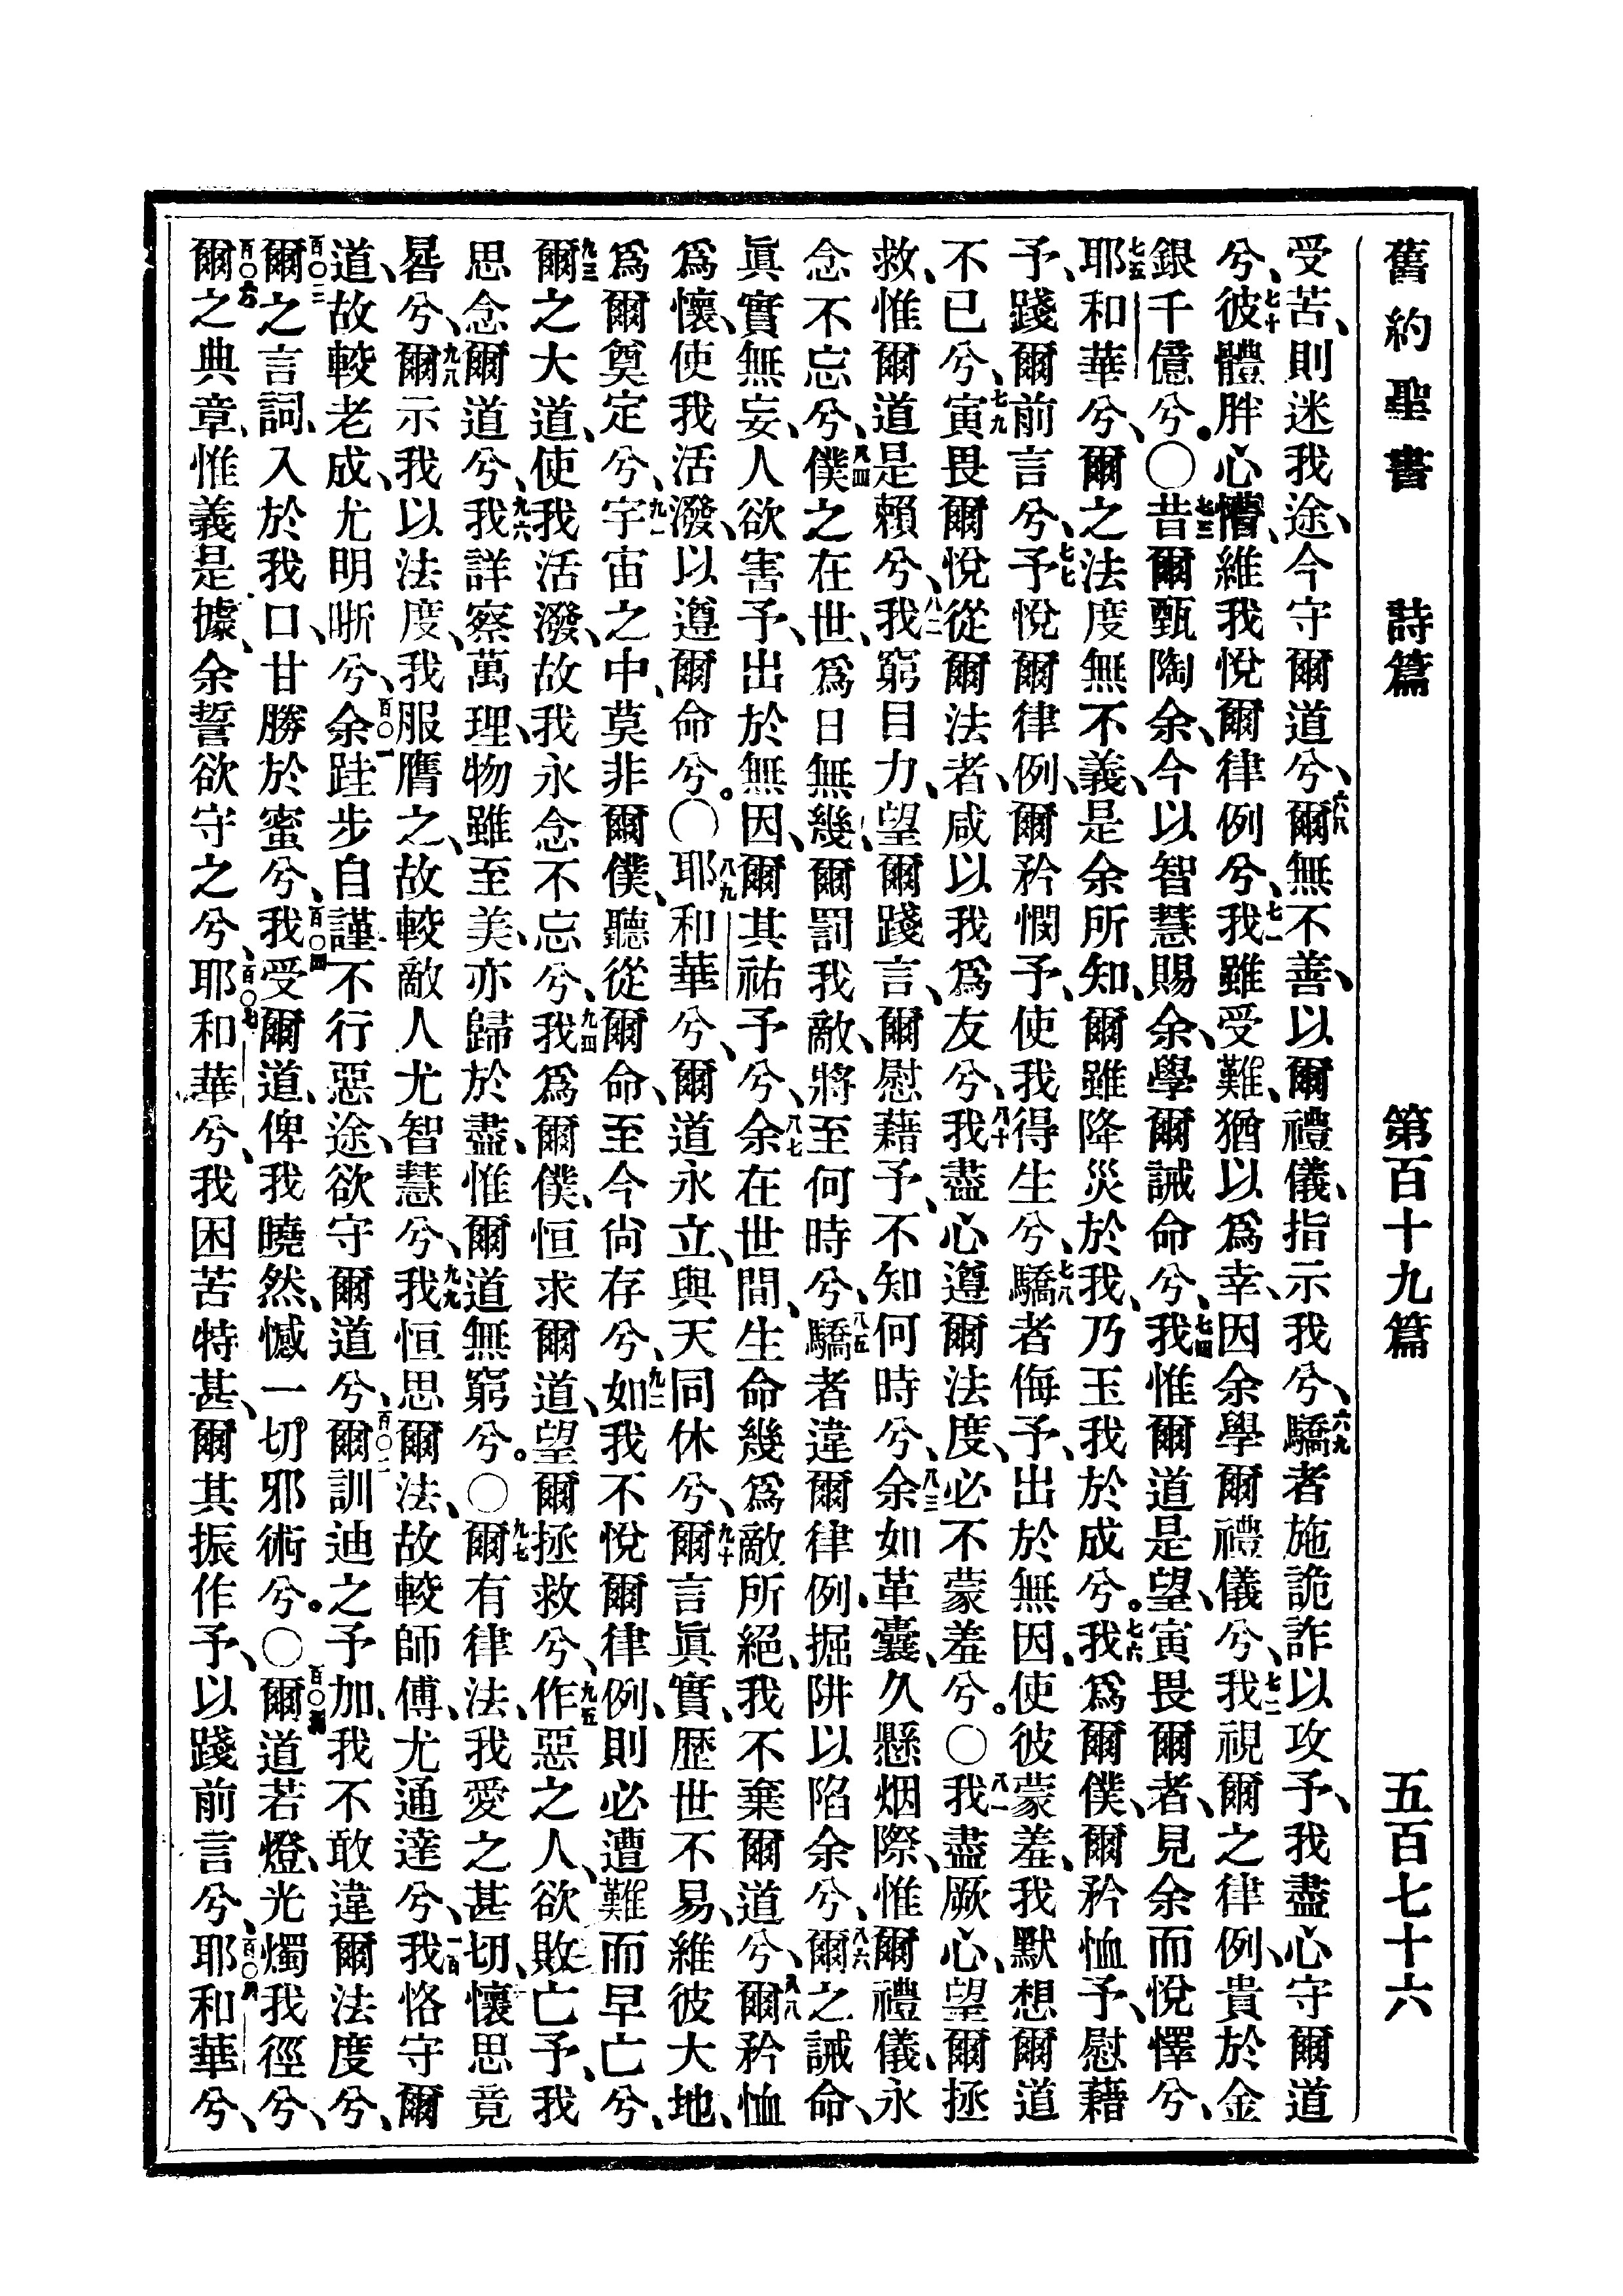 舊約聖書 詩篇 第百十九篇 五百七十六
受苦、則迷我途、今守爾道兮、六八爾無不善、以爾禮儀、指示我兮、六九驕者施詭詐以攻予、我盡心守爾道
兮、七十彼體胖心懵、維我悅爾律例兮、七一我雖受難、猶以爲幸、因余學爾禮儀兮、七二我視爾之律例、貴於金
銀千億兮。〇七三昔爾甄陶余、今以智慧賜余、學爾誡命兮、七四我惟爾道是望、寅畏爾者、見余而悅懌兮、
七五耶和華兮、爾之法度無不義、是余所知、爾雖降災於我、乃玉我於成兮。七六我爲爾僕、爾矜恤予、慰藉
予、踐爾前言兮、七七予悅爾律例、爾矜憫予、使我得生兮、七八驕者侮予、出於無因、使彼蒙羞、我默想爾道
不已兮、七九寅畏爾悅從爾法者、咸以我爲友兮、八十我盡心遵爾法度、必不蒙羞兮。〇八一我盡厥心、望爾拯
救、惟爾道是賴兮、八二我窮目力、望爾踐言、爾慰藉予、不知何時兮、八三余如革囊、久懸烟際、惟爾禮儀、永
念不忘兮、八四僕之在世、爲日無幾、爾罰我敵、將至何時兮、八五驕者違爾律例、掘阱以陷余兮、八六爾之誡命、
眞實無妄、人欲害予、出於無因、爾其祐予兮、八七余在世間、生命幾爲敵所絕、我不棄爾道兮、八八爾矜恤
爲懷、使我活潑、以遵爾命兮。〇八九耶和華兮、爾道永立、與天同休兮、九十爾言眞實、歷世不易、維彼大地、
爲爾奠定兮、九一宇宙之中、莫非爾僕、聽從爾命、至今尙存兮、九二如我不悅爾律例、則必遭難而早亡兮、
九三爾之大道、使我活潑、故我永念不忘兮、九四我爲爾僕、恒求爾道、望爾拯救兮、九五作惡之人、欲敗亡予、我
思念爾道兮、九六我詳察萬理、物雖至美、亦歸於盡、惟爾道無窮兮。〇九七爾有律法、我愛之甚切、懷思竟
晷兮、九八爾示我以法度、我服膺之、故較敵人尤智慧兮、九九我恒思爾法、故較師傅、尤通達兮、一百我恪守爾
道、故較老成、尤明晰兮、百〇一余跬步自謹、不行惡途、欲守爾道兮、百〇二爾訓迪之予加、我不敢違爾法度兮、
百〇三爾之言詞、入於我口、甘勝於蜜兮、百〇四我受爾道、俾我曉然、憾一切邪術兮。〇百〇五爾道若燈、光燭我徑兮、
百〇六爾之典章、惟義是據、余誓欲守之兮、百〇七耶和華兮、我困苦特甚、爾其振作予、以踐前言兮、百〇八耶和華兮、